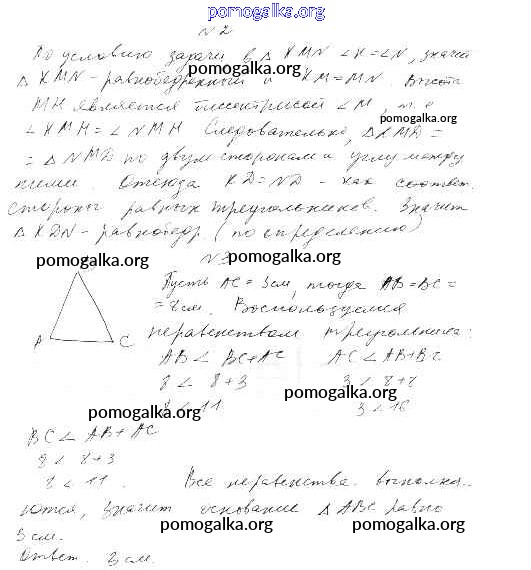 pomogalka.org
№2
По условию задачи в △ KMN ∠K=∠N, значит
△ KMN - равнобедренный и KM=MN. Высота
pomogalka.org
MH является биссектрисой ∠M, т. е
∠KMH = ∠NMH Следовательно, △KMD =
pomogalka.org
= △NMD по двум сторонам и углу между
ними. Отсюда KD=ND - как соответ.
стороны равных треугольников. Значит
△KDN - равнобедр (по определению)
№3
pomogalka.org pomogalka.org
Пусть AC = 3см, тогда AB=BC=
= 8см. Воспользуемся
неравенством треугольника:
pomogalka.org
A C
AB < BC+AC AC < AB+BC
8 < 8+3 3 < 8+8
pomogalka.org
8 < 11 3 < 16
pomogalka.org
BC < AB + AC
8 < 8+3
8 < 11. Все неравенства выполня-
ются, значит основание △ ABC равно
3 см.
pomogalka.org pomogalka.org
Ответ. 3 см.